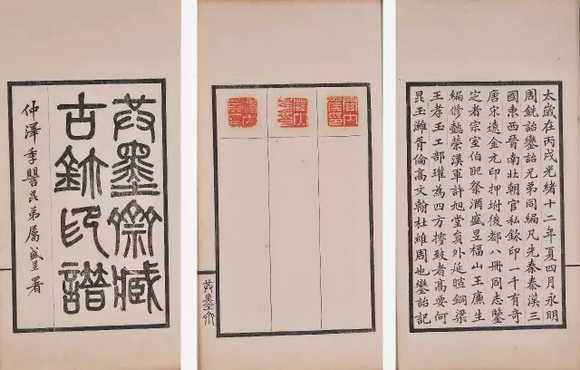 共墨齋藏
古鉨印譜
仲澤季譻昆弟屬盛昱署
共墨齋
太歲在丙戌光緒十二年夏四月永明
周銑詒鑾詒兄弟同編凡先秦秦漢三
國東西晉南北朝官私鉨印一千有奇
唐宋遼金元印押坿後都八冊同志鑒
定者宗室伯熙祭酒盛昱福山王廉生
編修懿榮漢軍許旭堂員外延暄銅梁
王孝玉工部瓘為四方搒致者高要何
昆玉濰胥倫高文翰杜維周也鑾詒記